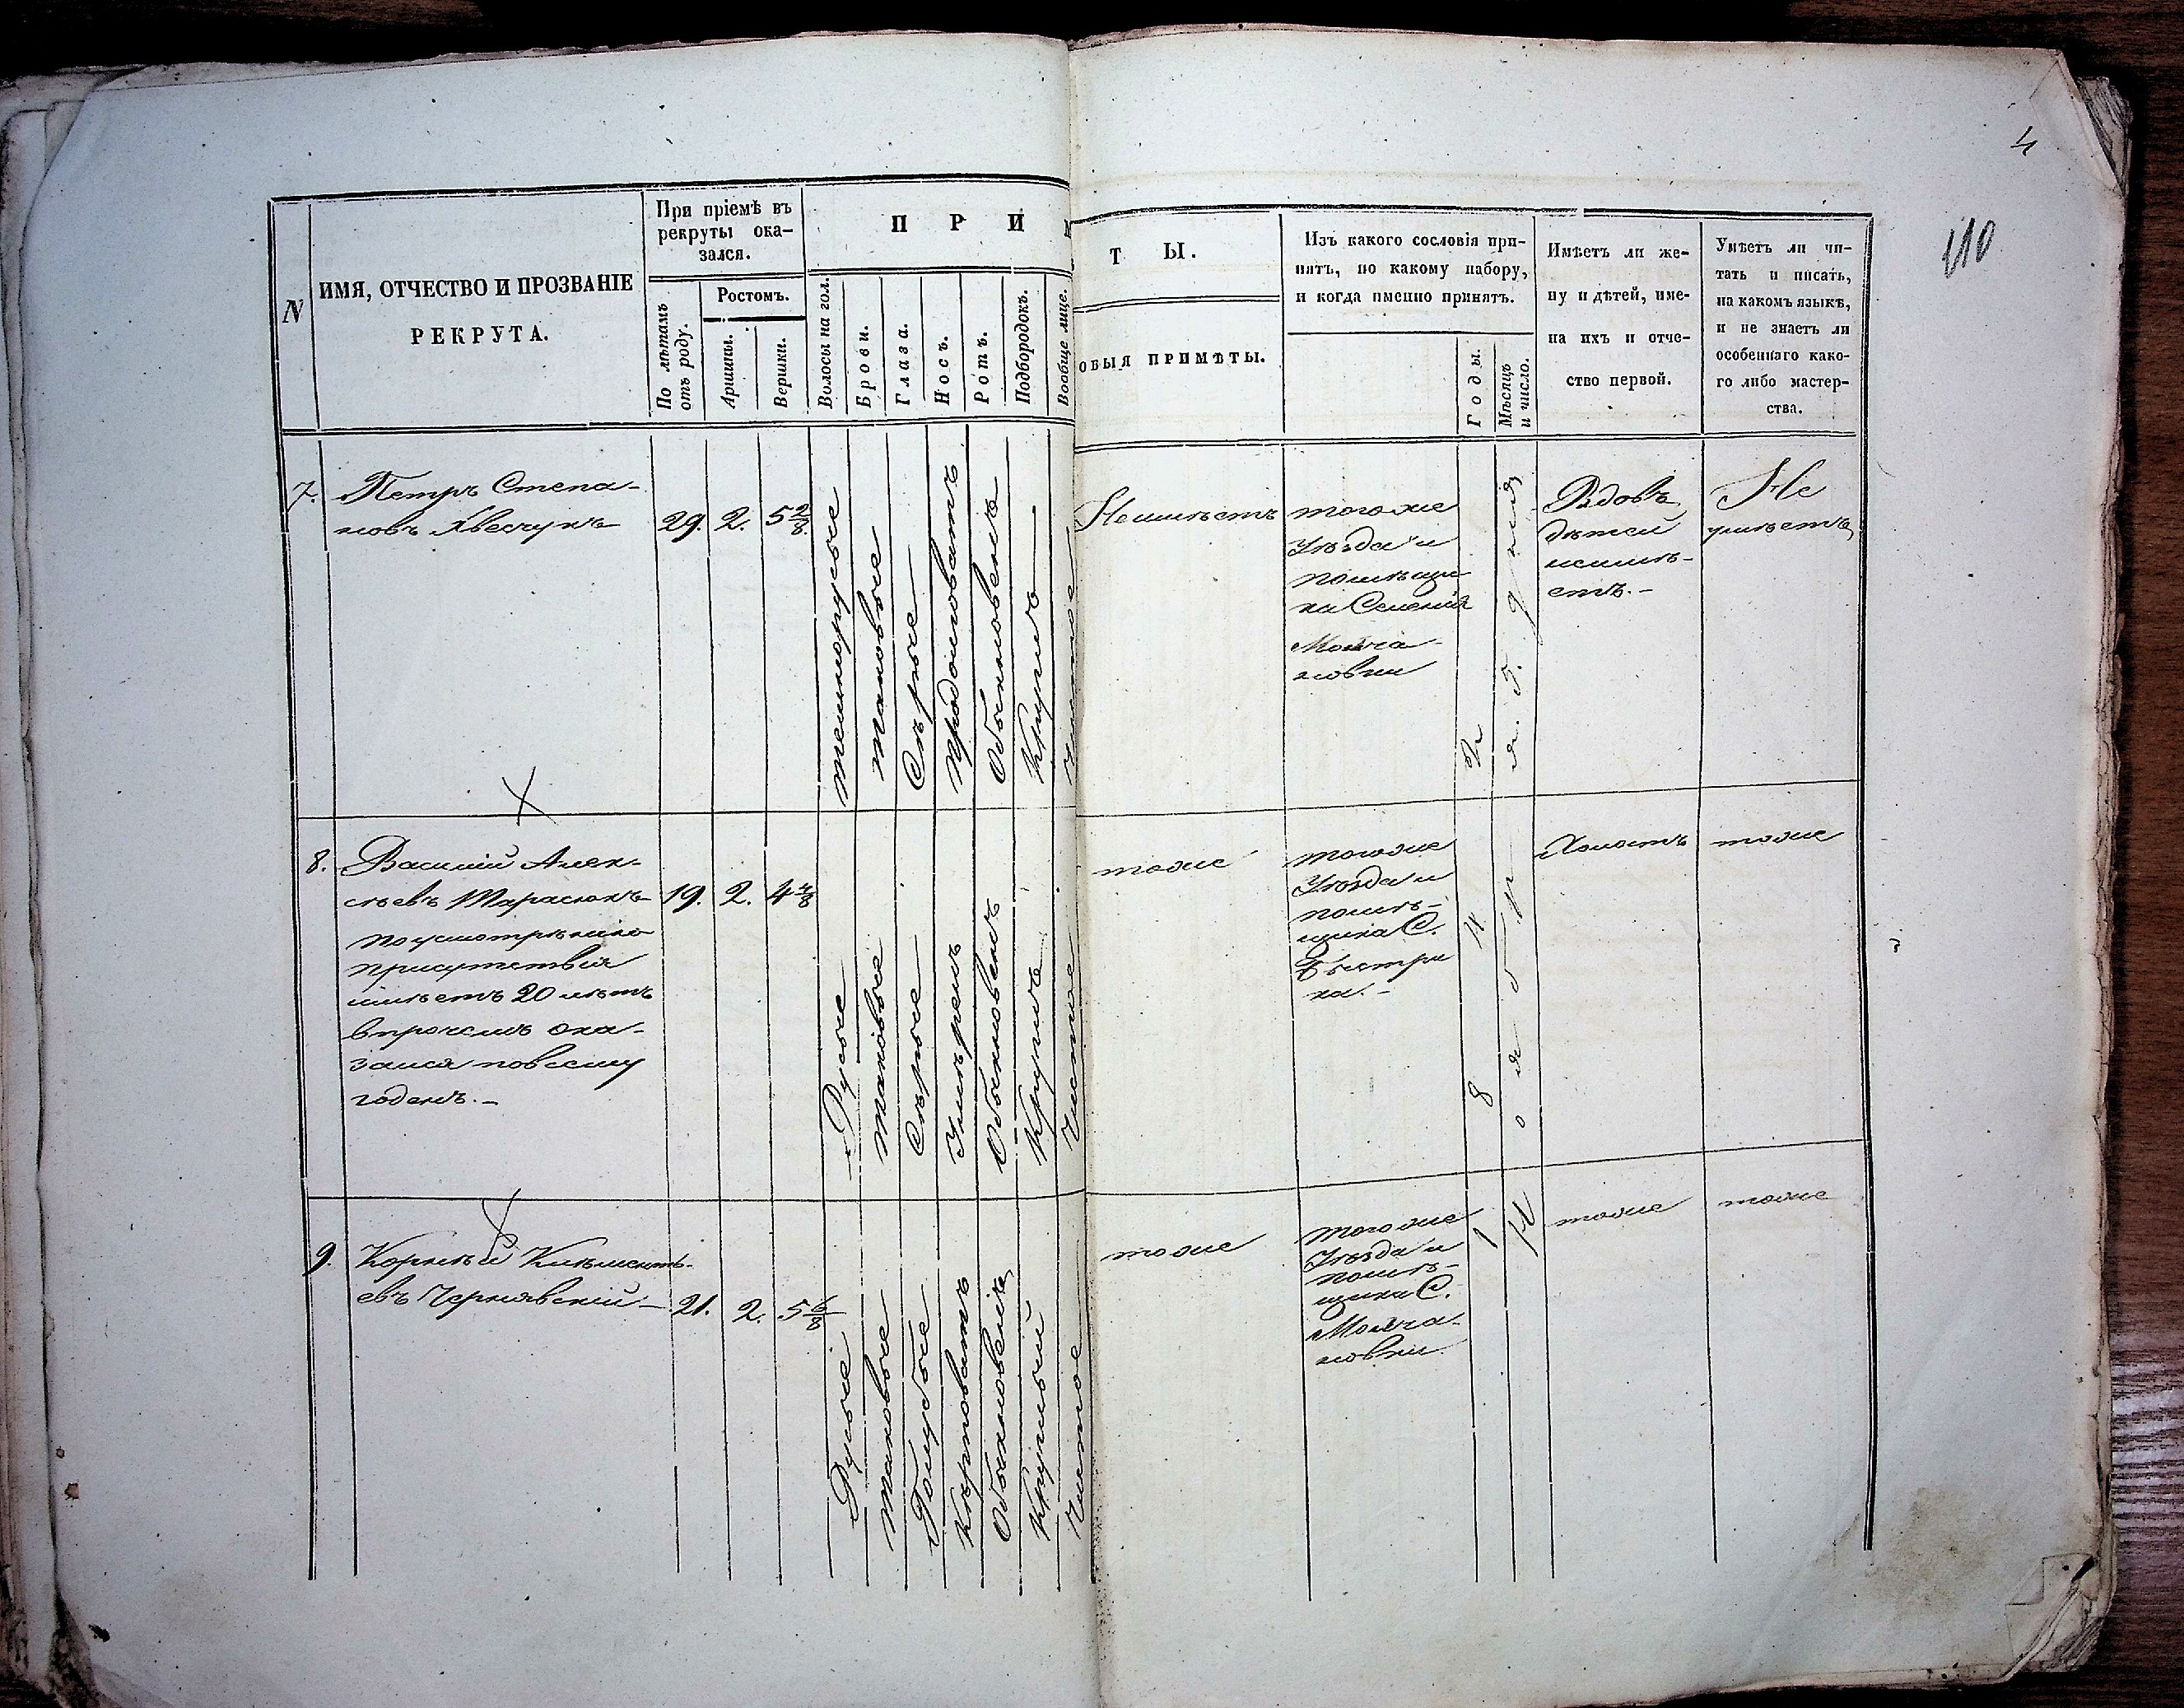 4
110
N
ИМЯ, ОТЧЕСТВО И ПРОЗВАНІЕ
РЕКРУТА.
При пріемѣ въ
рекруты ока-
зался.
По лѣтамъ
отъ роду.
Ростомъ.
Аршины.
Вершки.
П Р И
Волосы на гол.
Брови.
Глаза.
Носъ.
Ротъ.
Подбородокъ.
Вообще лице.
Т Ы.
ОБЫЯ ПРИМѢТЫ.
Изъ какого сословія при-
нятъ, по какому набору,
и когда именно принятъ.
Годы.
Мѣсяцъ
и число.
Имѣетъ ли же-
ну и дѣтей, име-
на ихъ и отче-
ство первой.
Умѣетъ ли чи-
тать и писать,
на какомъ языкѣ,
и не знаетъ ли
особеннаго како-
го либо мастер-
ства.
7.
Петръ Степа-
новъ Квесчукъ
29.
2.
5 2/8.
темнорусые
таковые
Сѣрые
продолговатъ
Обыкновенъ
Круглъ
Чистое
Неимѣетъ
тогоже
Уѣзда и
помѣщи
ка Селенія
Молча
новки
Вдовъ
дѣтей
неимѣ-
етъ.-
Не
умѣетъ
8.
Василій Алек-
сѣевъ Тарасюкъ
по усмотрѣнію
присутствія
имѣетъ 20 лѣтъ
впрочемъ ока-
зался повсему
годенъ.-
19.
2.
4 4/8
Русые
таковые
Сѣрые
Умѣренъ
Обыкновенъ
Круглъ
Чистое
тоже
тогоже
Уѣзда и
помѣ-
щика С.
Быстри
ка.-
Холостъ
тоже
9.
Корнѣй Климентъ-
евъ Чернявскій
21.
2.
5 6/8
Русые
таковые
Голубые
Обыкновенъ
Круглый
Чистое
тоже
тогоже
Уѣзда и
помѣ-
щика С.
Молча-
новки.
тоже
тоже